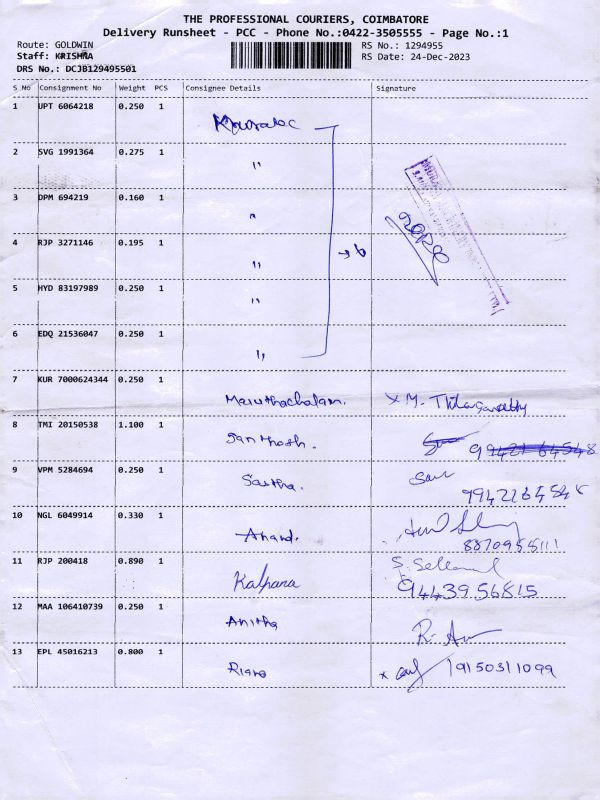 THE PROFESSIONAL COURIERS, COIMBATORE
Delivery Runsheet - PCC - Phone No.:0422-3505555 - Page No.:1
Route: GOLDWIN RS No.: 1294955
Staff: KRISHNA RS Date: 24-Dec-2023
DRS No.: DCJB129495501
S No Consignment No Weight PCS Consignee Details Signature
1 UPT 6064218 0.250 1
2 SVG 1991364 0.275 1 "
3 DPM 694219 0.160 1 "
4 RJP 3271146 0.195 1 " → 6
5 HYD 83197989 0.250 1 "
6 EDQ 21536047 0.250 1 "
7 KUR 7000624344 0.250 1
Maruthachalam. x M.
8 TMI 20150538 1.100 1
Santhosh.
9 VPM 5284694 0.250 1
Saritha.
10 NGL 6049914 0.330 1
Anand. 8870955111
11 RJP 200418 0.890 1
Kalpana 9443956815
12 MAA 106410739 0.250 1
Anitha
13 EPL 45016213 0.800 1
x 9150311099